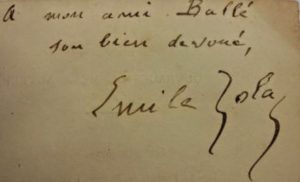 A mon ami Ballé
son bien dévoué,
Emile Zola